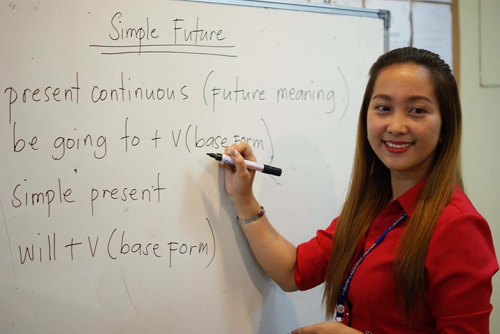 Simple Future
present continuous (Future meaning)
be going to + V (base form)
simple present
will + V (base form)